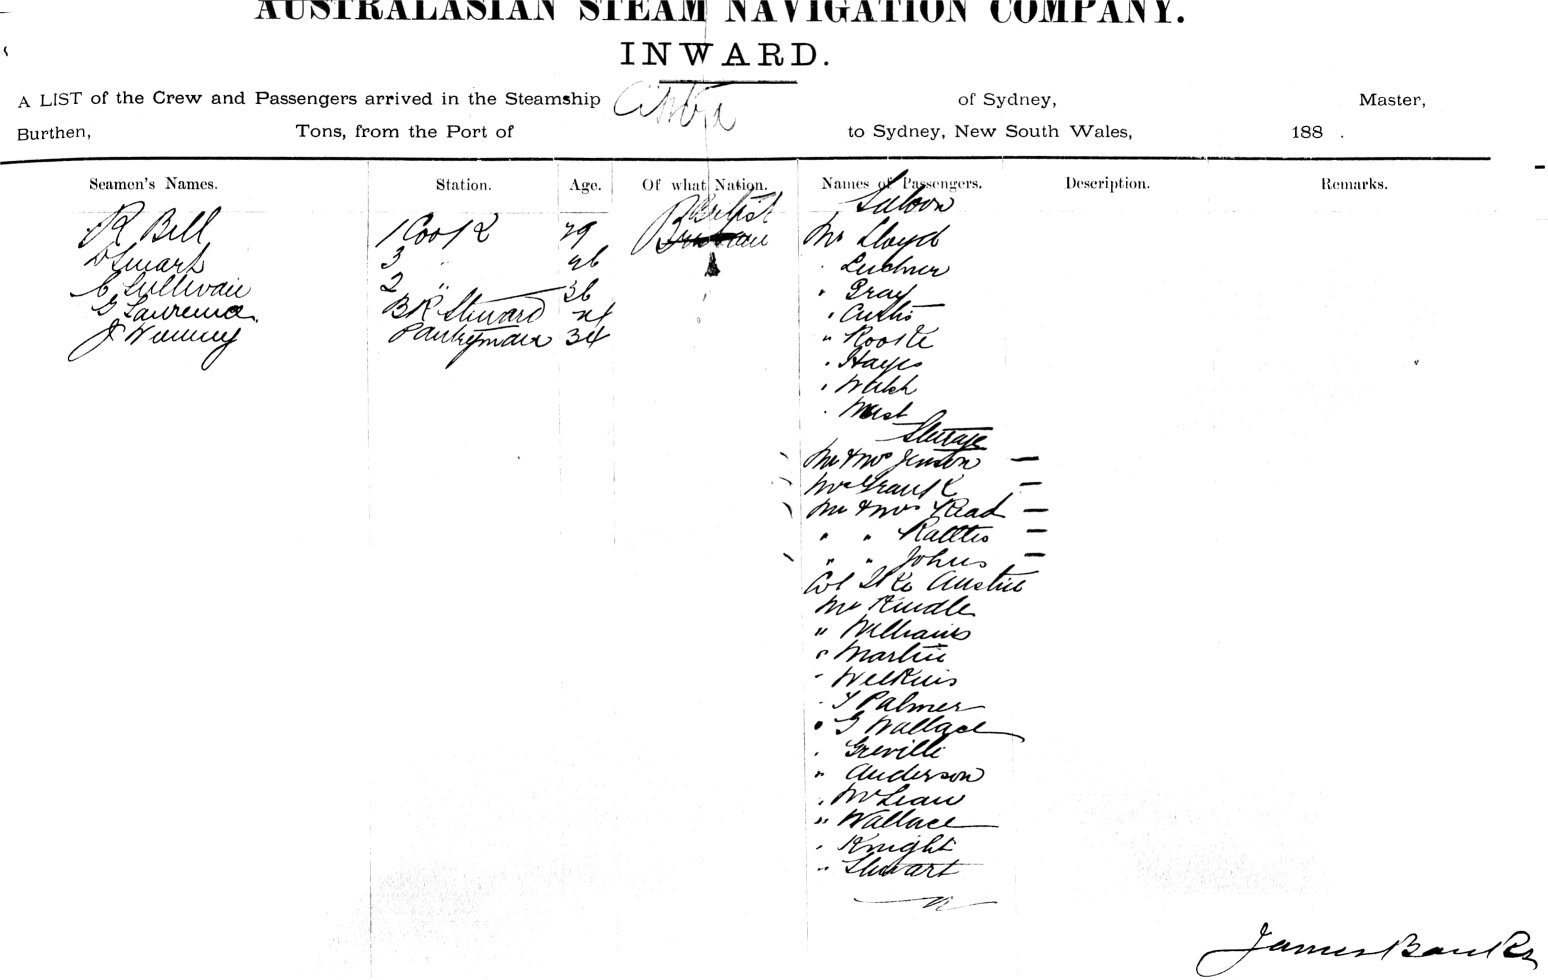 AUSTRALASIAN STEAM NAVIGATION COMPANY.
INWARD.
A LIST of the Crew and Passengers arrived in the Steamship of Sydney, Master,
Burthen, Tons, from the Port of to Sydney, New South Wales, 188 .
Seamen's Names. Station. Age. Of what Nation. Names of Passengers. Description. Remarks.
Saloon
R Bell 1 Cook 29 British Mr Lloyd
3 " 26 "
C Sullivan 2 " 36 " Gray
Lawrence B R Steward " Curtis
J Pantryman 34 "
" Hayes
" Walsh
" West
Steerage
Mr & Mrs Jenson —
Mrs —
Mr & Mrs Read —
" " —
" " Johns —
Austin
Mr Kindle
" Williams
" Martin
" Wilkins
" T Palmer
" G Wallace
" Greville
" Anderson
" McLean
" Wallace
" Knight
" Stewart
James Banks